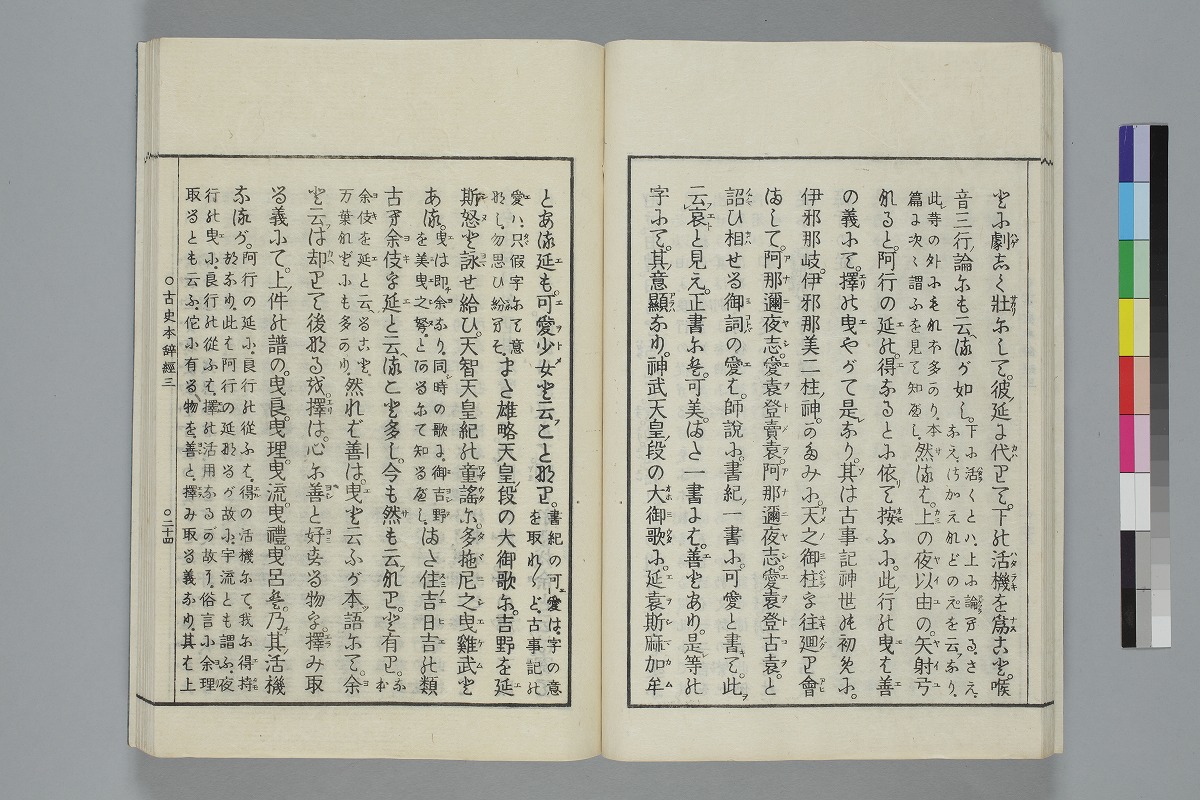 少劇しく壯にして。彼延に代りて。下の活機を爲こと。喉
音三行論にも云るが如し。下に活くとハ、上に論ヘる、さえ、
此等の外にもれ本多かり、本
篇に次々謂ふを見て知べし、然るを。上の夜以由の。矢射弓
れると。阿行の延の。得なるとに依て按ふに。此行の曳を善
の義にて。擇の曳やがて是なり。其は古事記神世の初めに。
伊邪那岐。伊邪那美二柱神。のみに。天之御柱を往廻り會
まして。阿那邇夜志。愛袁登賣袁。阿那邇夜志。愛袁登古袁。と
詔ひ相せる御詞の愛を。師說に。書紀一書に。可愛と書て。此
云哀と見え。正書にも。可美。また一書には。善とあり。是等の
字にて。其意顯なり。神武天皇段の大御歌に。延袁斯麻加牟
とある延も。可愛少女と云ことなり。書紀の可愛は、字の意を取れゝど、古事記の
愛ハ、只假字にて意なし、勿思ひ紛ヘそ、また雄略天皇段の大御歌に。吉野を延
斯怒と詠せ給ひ。天智天皇紀の童謠に。多拖尼之曳鷄武と
ある。曳は即余なり、同時の歌に、御吉野を美曳之弩、とあるにて知るべし、また住吉日吉の類
古ヘ余伎を延と云ること多し。今も然も云れり。と有り。なお
余伎を延と云ること、万葉などにも多かり、然れば善は。曳と云ふが本語にて。余
と云は却りて後なる故。擇は。心に善と好まるる物を。擇み取
る義にて。上件の譜の。曳良。曳理。曳流。曳禮。曳呂も。乃其活機
なるが。阿行の延に、良行の從ふも、得の活機にて、我に得持
故なり、此も阿行の延なるが故に、字流とも謂ふ、夜
行の曳に、良行の從ふも、擇の活用なるが故に、俗言に余理
取るとも云ふ、佗に有るゝ物を、善と、擇み取る義なり、其も上
○古史本辭經三　○二十四